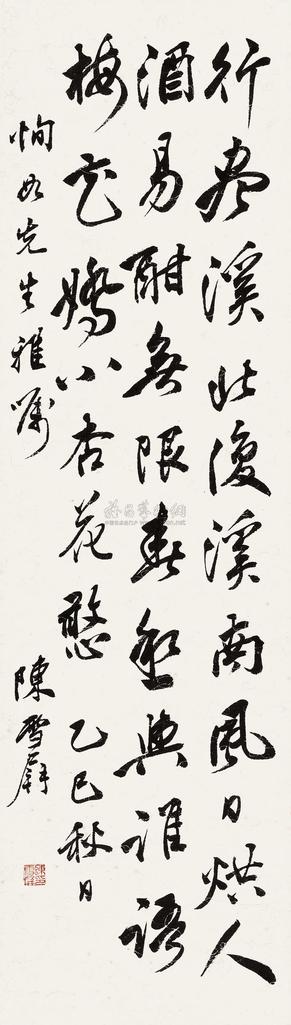 行盡溪北復溪南風日烘人
酒易酣無限春愁與誰語
梅花嬌小杏花憨 乙巳秋日
恂如先生雅囑 陳雪屏